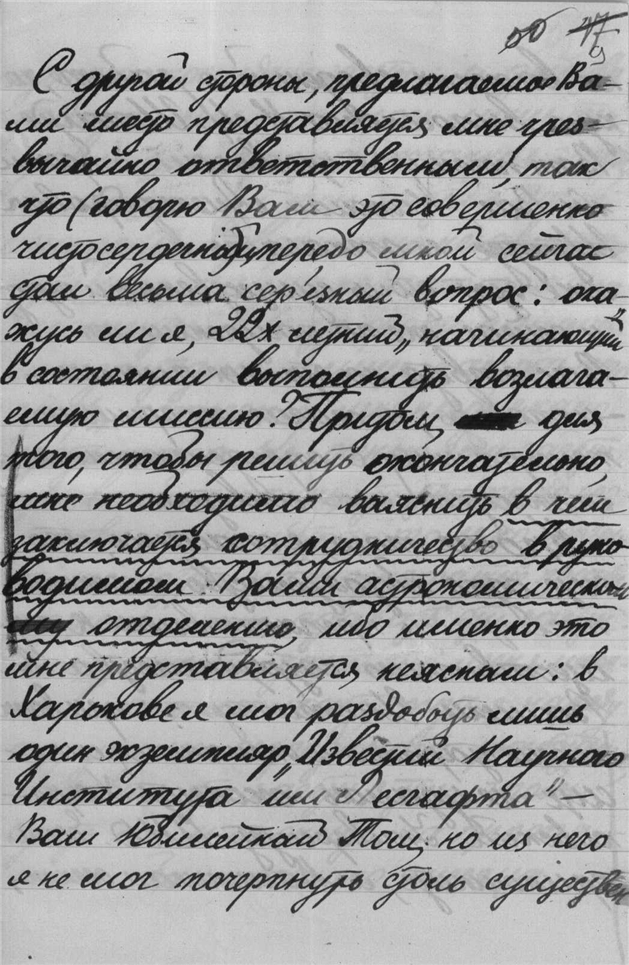 50 47
9
С другой стороны, предлагаемое Ва-
ми место представляется мне чрез-
вычайно ответственным, так
что (говорю Вам это совершенно
чистосердечно), передо мной сейчас
стал весьма серьезный вопрос: ока-
жусь ли я, 22х летний, „начинающий"
в состоянии выполнить возлага-
емую миссию? Притом, для
того, чтобы решить окончательно,
мне необходимо выяснить в чем
заключается сотрудничество в руко-
водимом Вами астрономическом
отделению, ибо именно это
мне представляется неясным: в
Харькове я мог раздобыть лишь
один экземпляр „Известий Научного
Института им Лесгафта" —
Ваш Юбилейный Том, но из него
я не мог почерпнуть столь существен